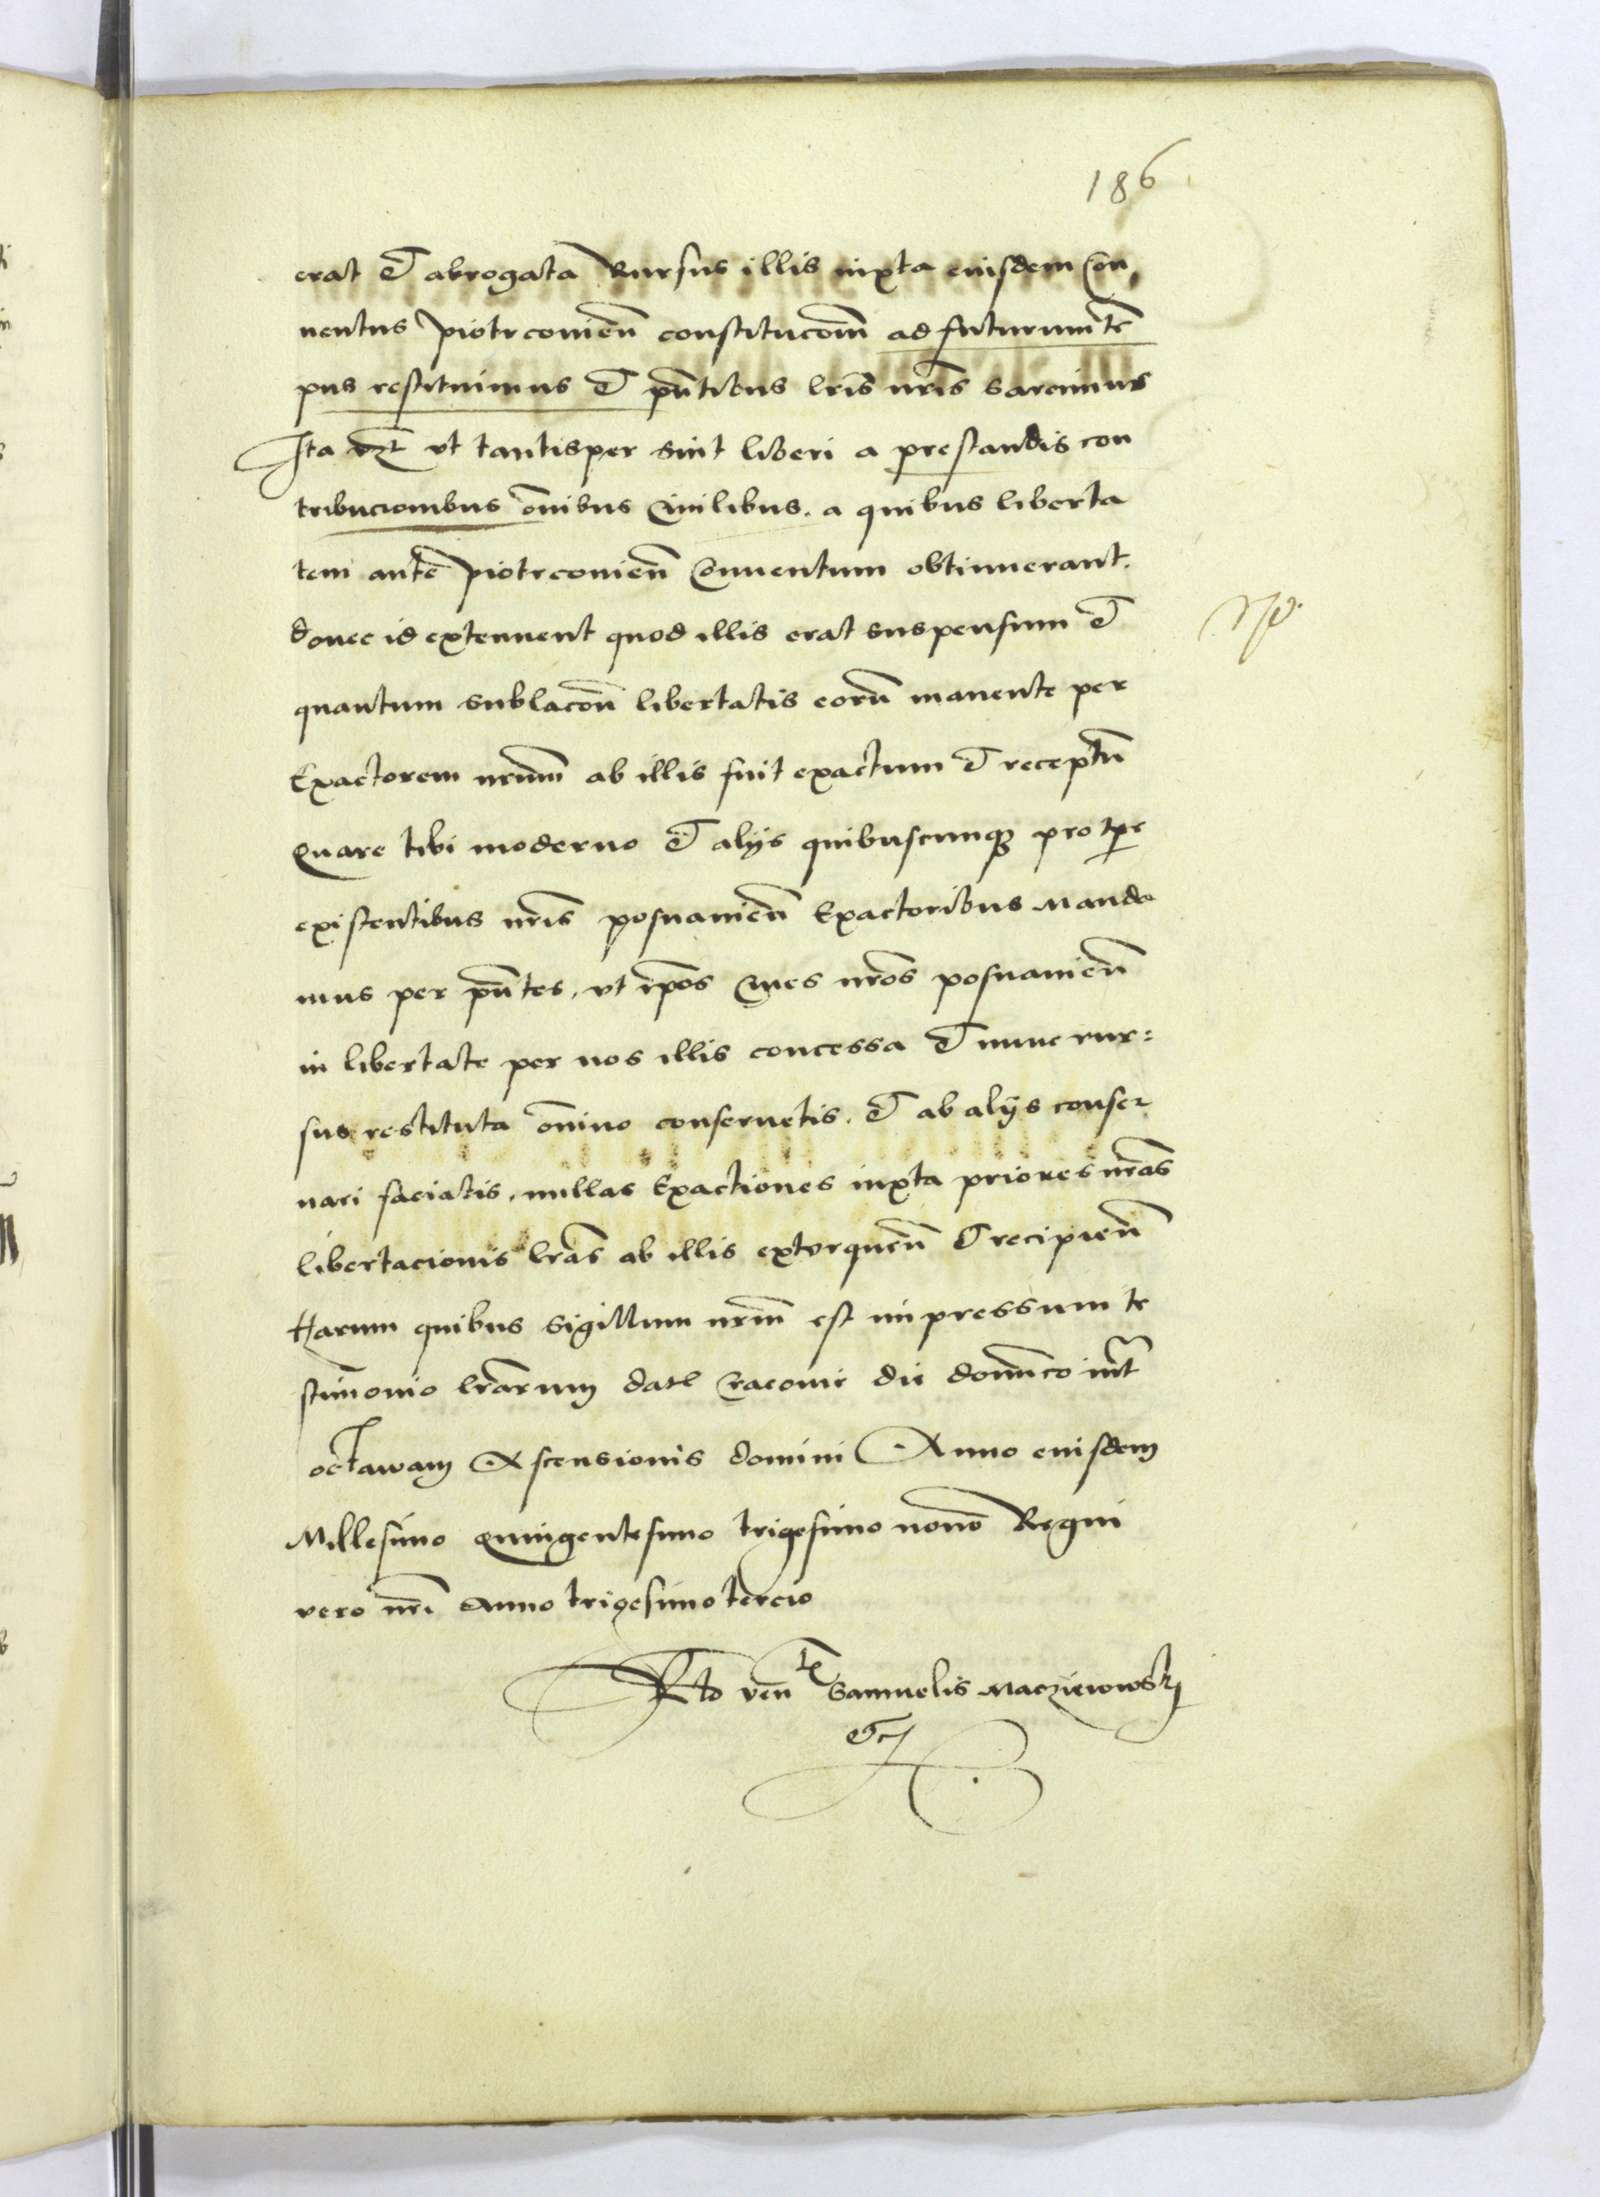 186
erat et abrogata Rursus illis iuxta eiusdem Con
uentus piotrconien̄ constitucōm̄ ad futurum tē
pus restituimus et pn̄tibus lrīs nrīs sarcimus
Ita vt tantisper sint liberi a prestandis con
tribucionibus ōnibus Ciuilibus. a quibus liberta
tem antē piotrconien̄ Conuentum obtinuerant.
donec id extenuent quod illis erat suspensum et
quantum sublacōn̄ libertatis eorū manente per
Exactorem nrūm ab illis fuit exactum et receptū
Quare tibi moderno et alijs quibuscunq3 pro tpre
existentibus nrīs posnanien̄ Exactoribus Manda
mus per pn̄tes. vt ipōs Ciues nrōs posnanien̄
in libertate per nos illis concessa et nunc rur=
sus restituta ōnino conseruetis. et ab alijs conser
uari faciatis. nullas Exactiones iuxta priores nrās
libertacionis lrās ab illis extorquen̄ et recipien̄
Harum quibus sigillum nrm̄ est impressum te
stimonio lrārum datl Cracouie die domīnco infrā
octawam Ascensionis domini Anno eiusdem
Millesimo quingentesimo trigesimo nono Regni
vero nrī Anno trigesimo tercio
Rlō ven̄ Samuelis Macziewowskj
etc